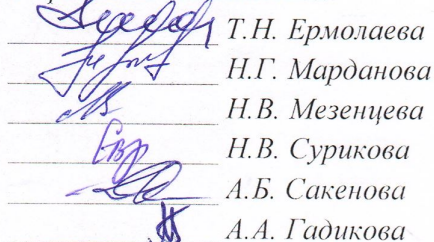 Т.Н. Ермолаева
Н.Г. Марданова
Н.В. Мезенцева
Н.В. Сурикова
А.Б. Сакенова
А.А. Гадикова